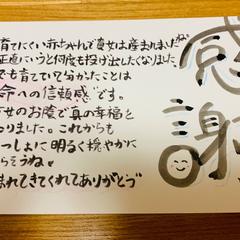 育てにくい赤ちゃんで貴女は産まれましたね
正直にいうと何度も投げ出したくなりました。
でも育てていて分かったことは
命への信頼感"です。
女のお陰で真の幸福を
りました。これからも
っしょに明るく穏やかに
らそうね♥
まれてきてくれてありがとう
感謝